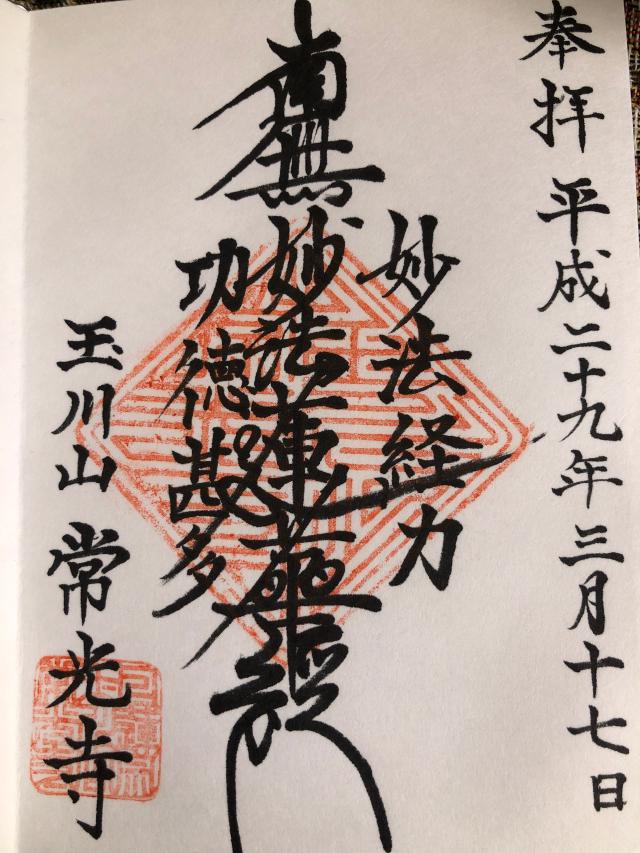 奉拝 平成二十九年三月十七日
妙法経力
南無妙法蓮華経
功徳甚多
玉川山 常光寺